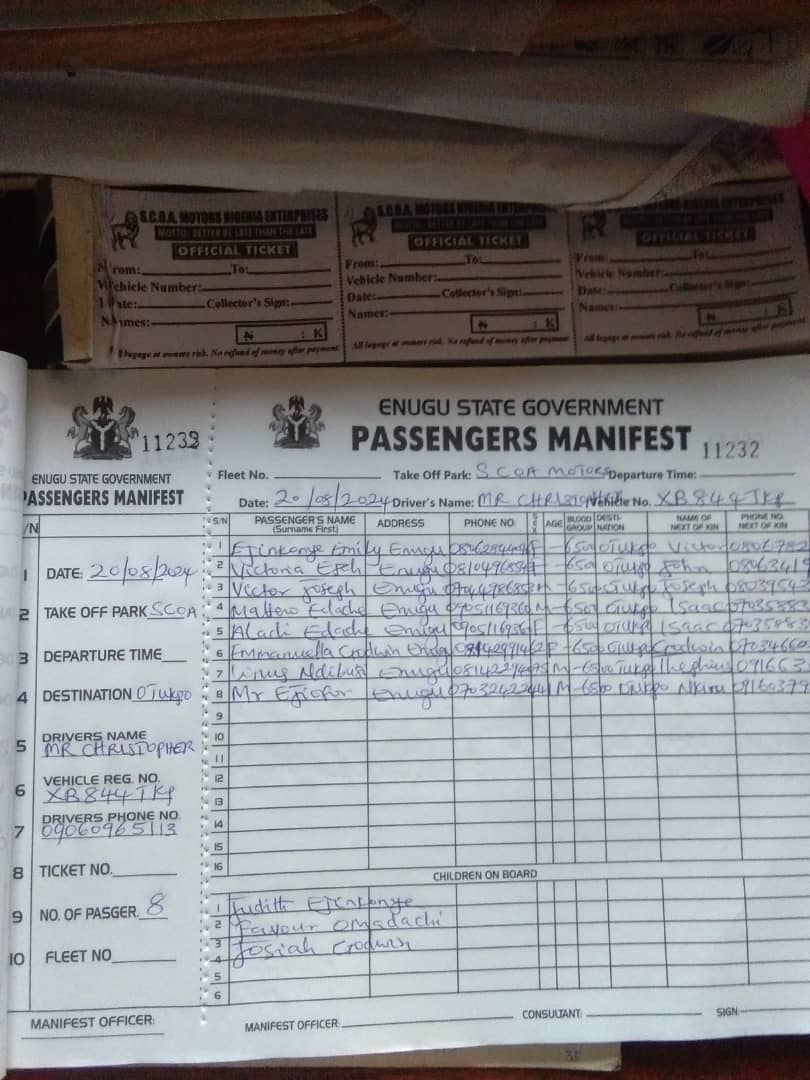 S.C.O.A. MOTORS NIGERIA ENTERPRISES
MOTTO: BETTER BE LATE THAN THE LATE
OFFICIAL TICKET
From: To:
Vehicle Number:
Date: Collector's Sign:
Names:
₦ : K
All lugage at owners risk. No refund of money after payment
S.C.O.A. MOTORS NIGERIA ENTERPRISES
MOTTO: BETTER BE LATE THAN THE LATE
OFFICIAL TICKET
From: To:
Vehicle Number:
Date: Collector's Sign:
Names:
₦ : K
All lugage at owners risk. No refund of money after payment
OFFICIAL TICKET
From: To:
Vehicle Number:
Date: Collector's Sign:
Names:
₦ : K
All lugage at owners risk. No refund of money after payment
11232
ENUGU STATE GOVERNMENT
PASSENGERS MANIFEST
/N
1 DATE: 20/08/2024
2 TAKE OFF PARK SCOA
3 DEPARTURE TIME
4 DESTINATION OTUKPO
5 DRIVERS NAME
MR CHRISTOPHER
6 VEHICLE REG. NO.
XB844TKP
7 DRIVERS PHONE NO.
09060965113
8 TICKET NO.
9 NO. OF PASGER. 8
10 FLEET NO
MANIFEST OFFICER:
ENUGU STATE GOVERNMENT
PASSENGERS MANIFEST 11232
Fleet No. Take Off Park: SCOA MOTORS Departure Time:
Date: 20/08/2024 Driver's Name: MR CHRISTOPHER Vehicle No. XB844TKP
S/N PASSENGER'S NAME (Surname First) ADDRESS PHONE NO. SEX AGE BLOOD GROUP DESTI-NATION NAME OF NEXT OF KIN PHONE NO. NEXT OF KIN
1 Ejinkonye Emily Enugu F -6500 Otukpo Victor
2 Victoria Enugu F -6500 Otukpo John
3 Victor Joseph Enugu M -6500 Otukpo Joseph
4 Mattew Edache Enugu M -6500 Otukpo Isaac
5 Aladi Edache Enugu F -6500 Otukpo Isaac
6 Emmanuella Godwin F -6500 Otukpo Godwin
7 Enugu M -6500 Otukpo
8 Mr Ejiofor Enugu M -6500 Otukpo Nkiru
9
10
11
12
13
14
15
16
CHILDREN ON BOARD
1 Judith Ejinkonye
2 Favour Omadachi
3 Josiah Godwin
4
5
6
MANIFEST OFFICER: CONSULTANT: SIGN.